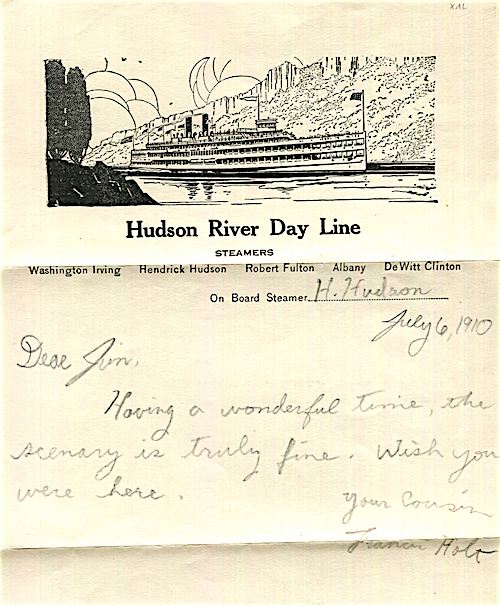 XAL
Hudson River Day Line
STEAMERS
Washington Irving Hendrick Hudson Robert Fulton Albany DeWitt Clinton
On Board Steamer H. Hudson
July 6, 1910
Dear Jim,
Having a wonderful time, the
scenary is truly fine. Wish you
were here.
Your Cousin
Francis Holt